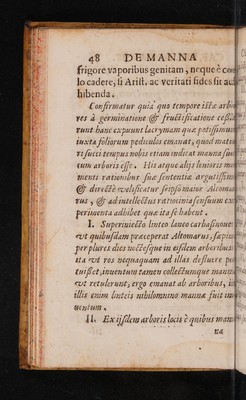 48 DE MANNA
frigore vaporibus genitam, neque è
lo cadere, si Arist. ac veritati fides sit
hibenda.
Confirmatur quia quo tempore istæ
res à germinatione & fructificatione
runt hanc expuunt lacrymam quæ potissimum
iuxta foliorum pediculos emanat, quod
ri succi tempus nobis etiam indicat manna
cum arboris esse. His atque alijs huiusmo
menti rationibus suæ sententiæ
& directè velificatur seipso maior
rus, & ad intellectus ratiocinia sensuum
perimenta adhibet quæ ita se habent.
I. Superiniecto linteo laneo
vt quibusdam præceperat Altomarus,
per plures dies noctesque in eisdem arboribus
ita vt ros nequaquam ad illas defluere
tuisset, inuentum tamen collectumque
vt retulerunt, ergo emanat ab arboribus,
illis enim linteis nihilominus mannæ fuit
uentum.
II. Ex ijsdem arboris locis è quibus
na